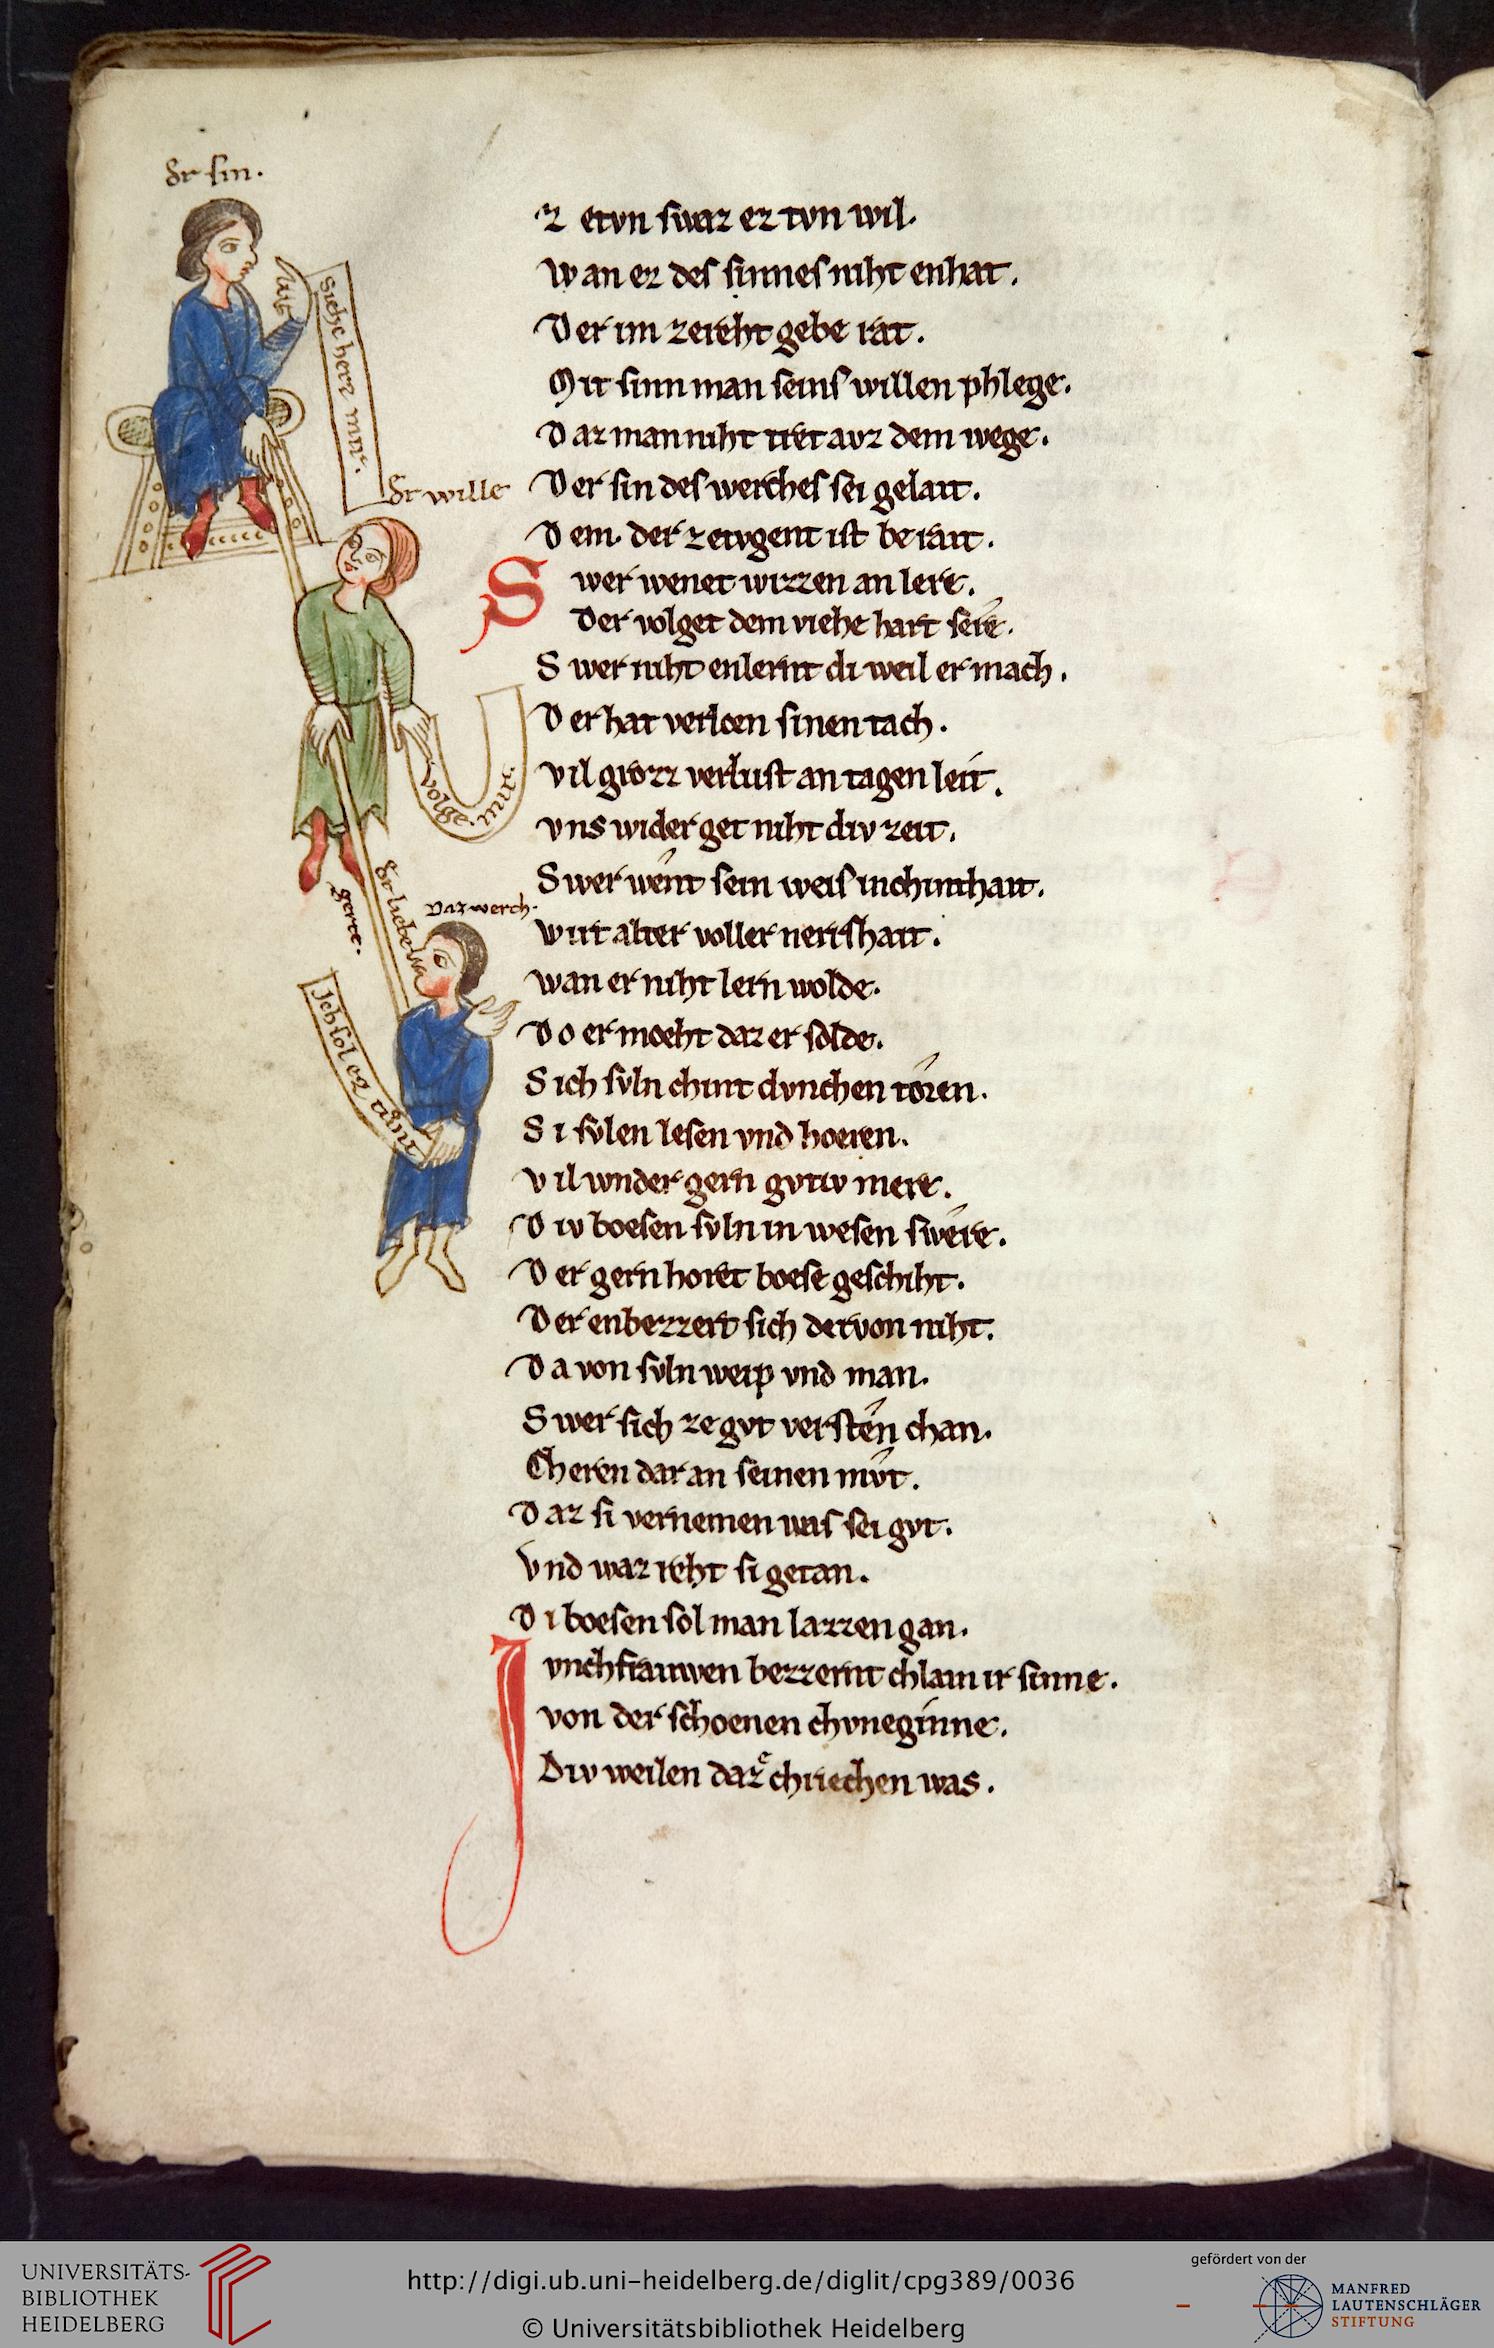 Dr sin.
Siehe herz mir.
Dr wille
volge. mir.
Dr liebe
gerte.
Daz werch.
Ich sol ez tunt
ez etvn swaz ez tvn wil.
Wan ez des sinnes niht enhat.
Der im zereht gebe rat.
Mit sinn man seins willen phlege.
Daz man niht tret avz dem wege.
Der sin des werches sei gelait.
Dem. der zetvgent ist berait.
Swer wenet wizzen an lere.
Der volget dem viehe hart sere.
Swer niht enlernt di weil er mach.
Der hat verloen sinen tach.
Vil grozz verlust an tagen leit.
Vns wider get niht div zeit.
Swer went sein weis in chinthait.
Wirt alter voller nertshait.
Wan er niht lern wolde.
Do er moeht daz er solde.
Sich svln chint dvnchen toren.
Si svlen lesen vnd hoeren.
Vil wnder gern gvtiv mere.
Div boesen svln in wesen swere.
Der gern horet boese geschiht.
Der enbezzert sich dervon niht.
Da von svln weip vnd man.
Swer sich ze gvt versten chan.
Cheren dar an seinen mvt.
Daz si vernemen was sei gvt.
Vnd waz reht si getan.
Di boesen sol man lazzen gan.
Jvnchfrauwen bezzernt chlain ir sinne.
von der schoenen chvneginne.
Div weilen daz e chriechen was.
UNIVERSITÄTS-
BIBLIOTHEK
HEIDELBERG
http://digi.ub.uni-heidelberg.de/diglit/cpg389/0036
© Universitätsbibliothek Heidelberg
gefördert von der
MANFRED
LAUTENSCHLÄGER
STIFTUNG